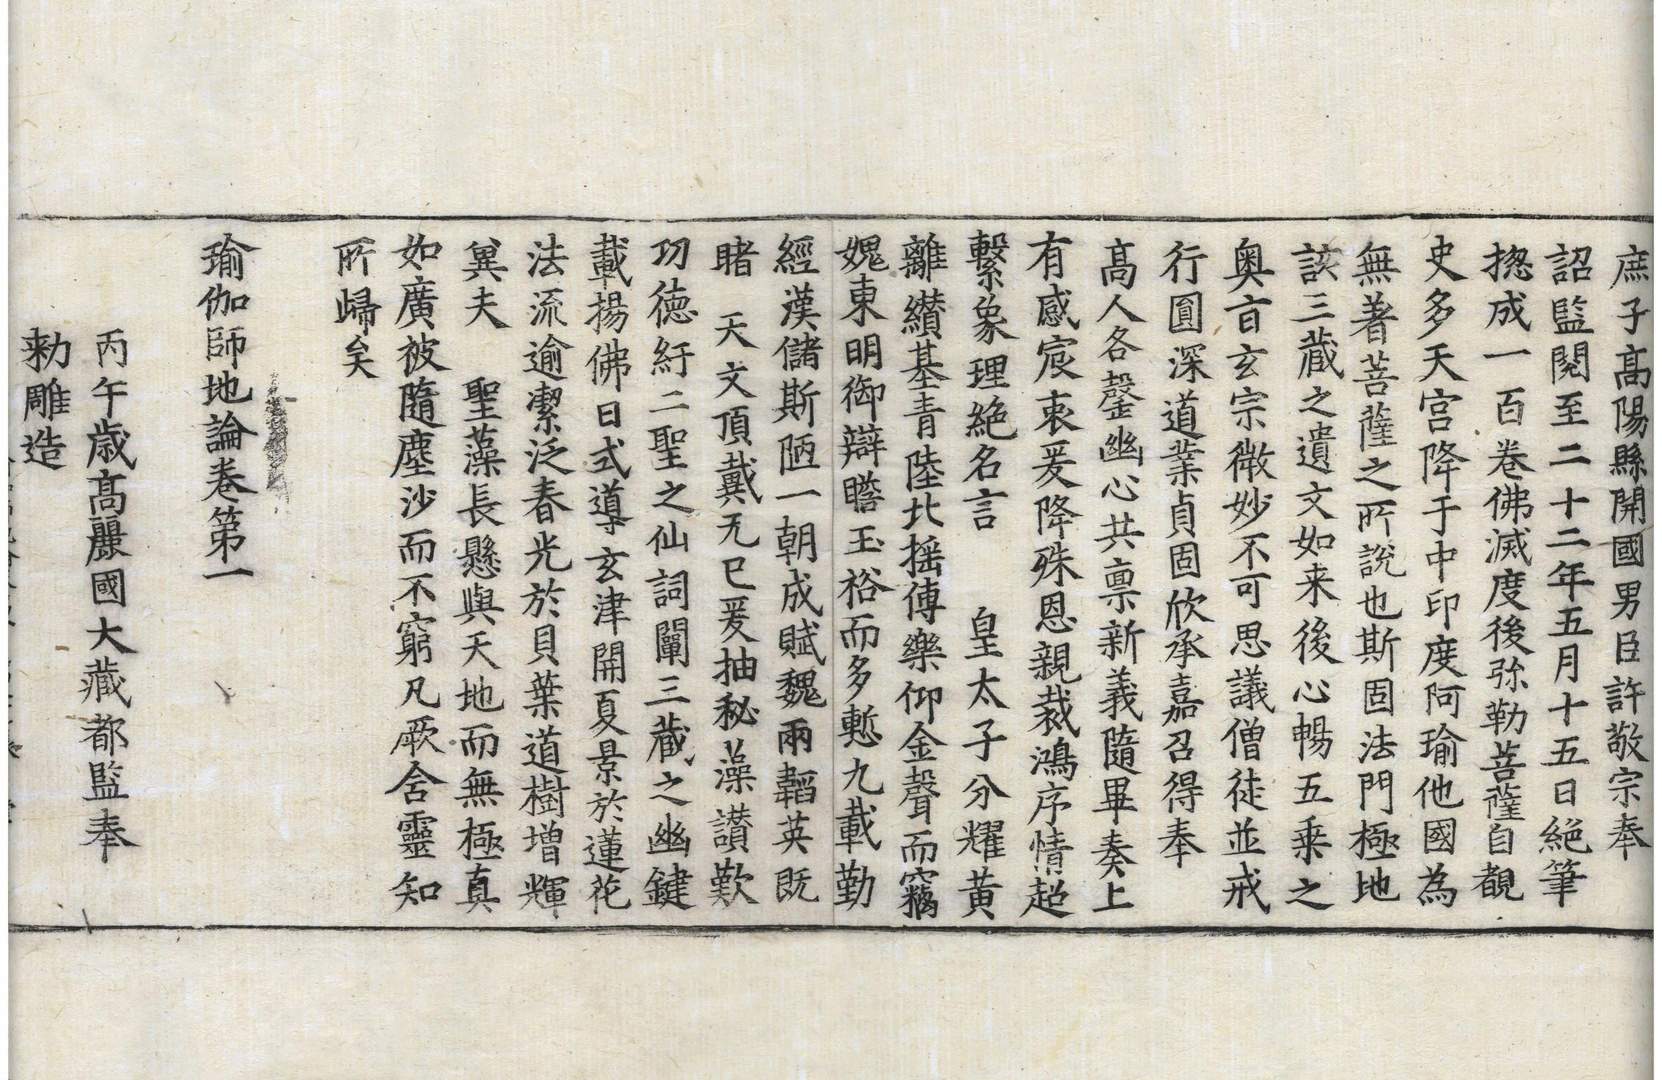 庶子高陽縣開國男臣許敬宗奉
詔監閱至二十二年五月十五日絕筆
揔成一百卷佛滅度後弥勒菩薩自覩
史多天宮降于中印度阿瑜他國為
無著菩薩之所說也斯固法門極地
該三藏之遺文如来後心暢五乘之
奧旨玄宗微妙不可思議僧徒並戒
行圓深道業貞固欣承嘉召得奉
高人各罄幽心共禀新義隨畢奏上
有感宸衷爰降殊恩親裁鴻序情超
繫象理絶名言　皇太子分耀黃
離纉基青陸北摇傅樂仰金聲而竊
媿東明御辯瞻玉裕而多慙九載勤
經漢儲斯陋一朝成賦魏兩韜英既
睹　天文頂戴无已爰抽秘藻讃歎
功德紆二聖之仙詞闡三藏之幽鍵
載揚佛日式導玄津開夏景於蓮花
法流逾潔泛春光於貝葉道樹增輝
冀夫　聖藻長懸與天地而無極真
如廣被隨塵沙而不窮凡厥含靈知
所歸矣
瑜伽師地論卷第一
丙午歲高麗國大藏都監奉
勑雕造